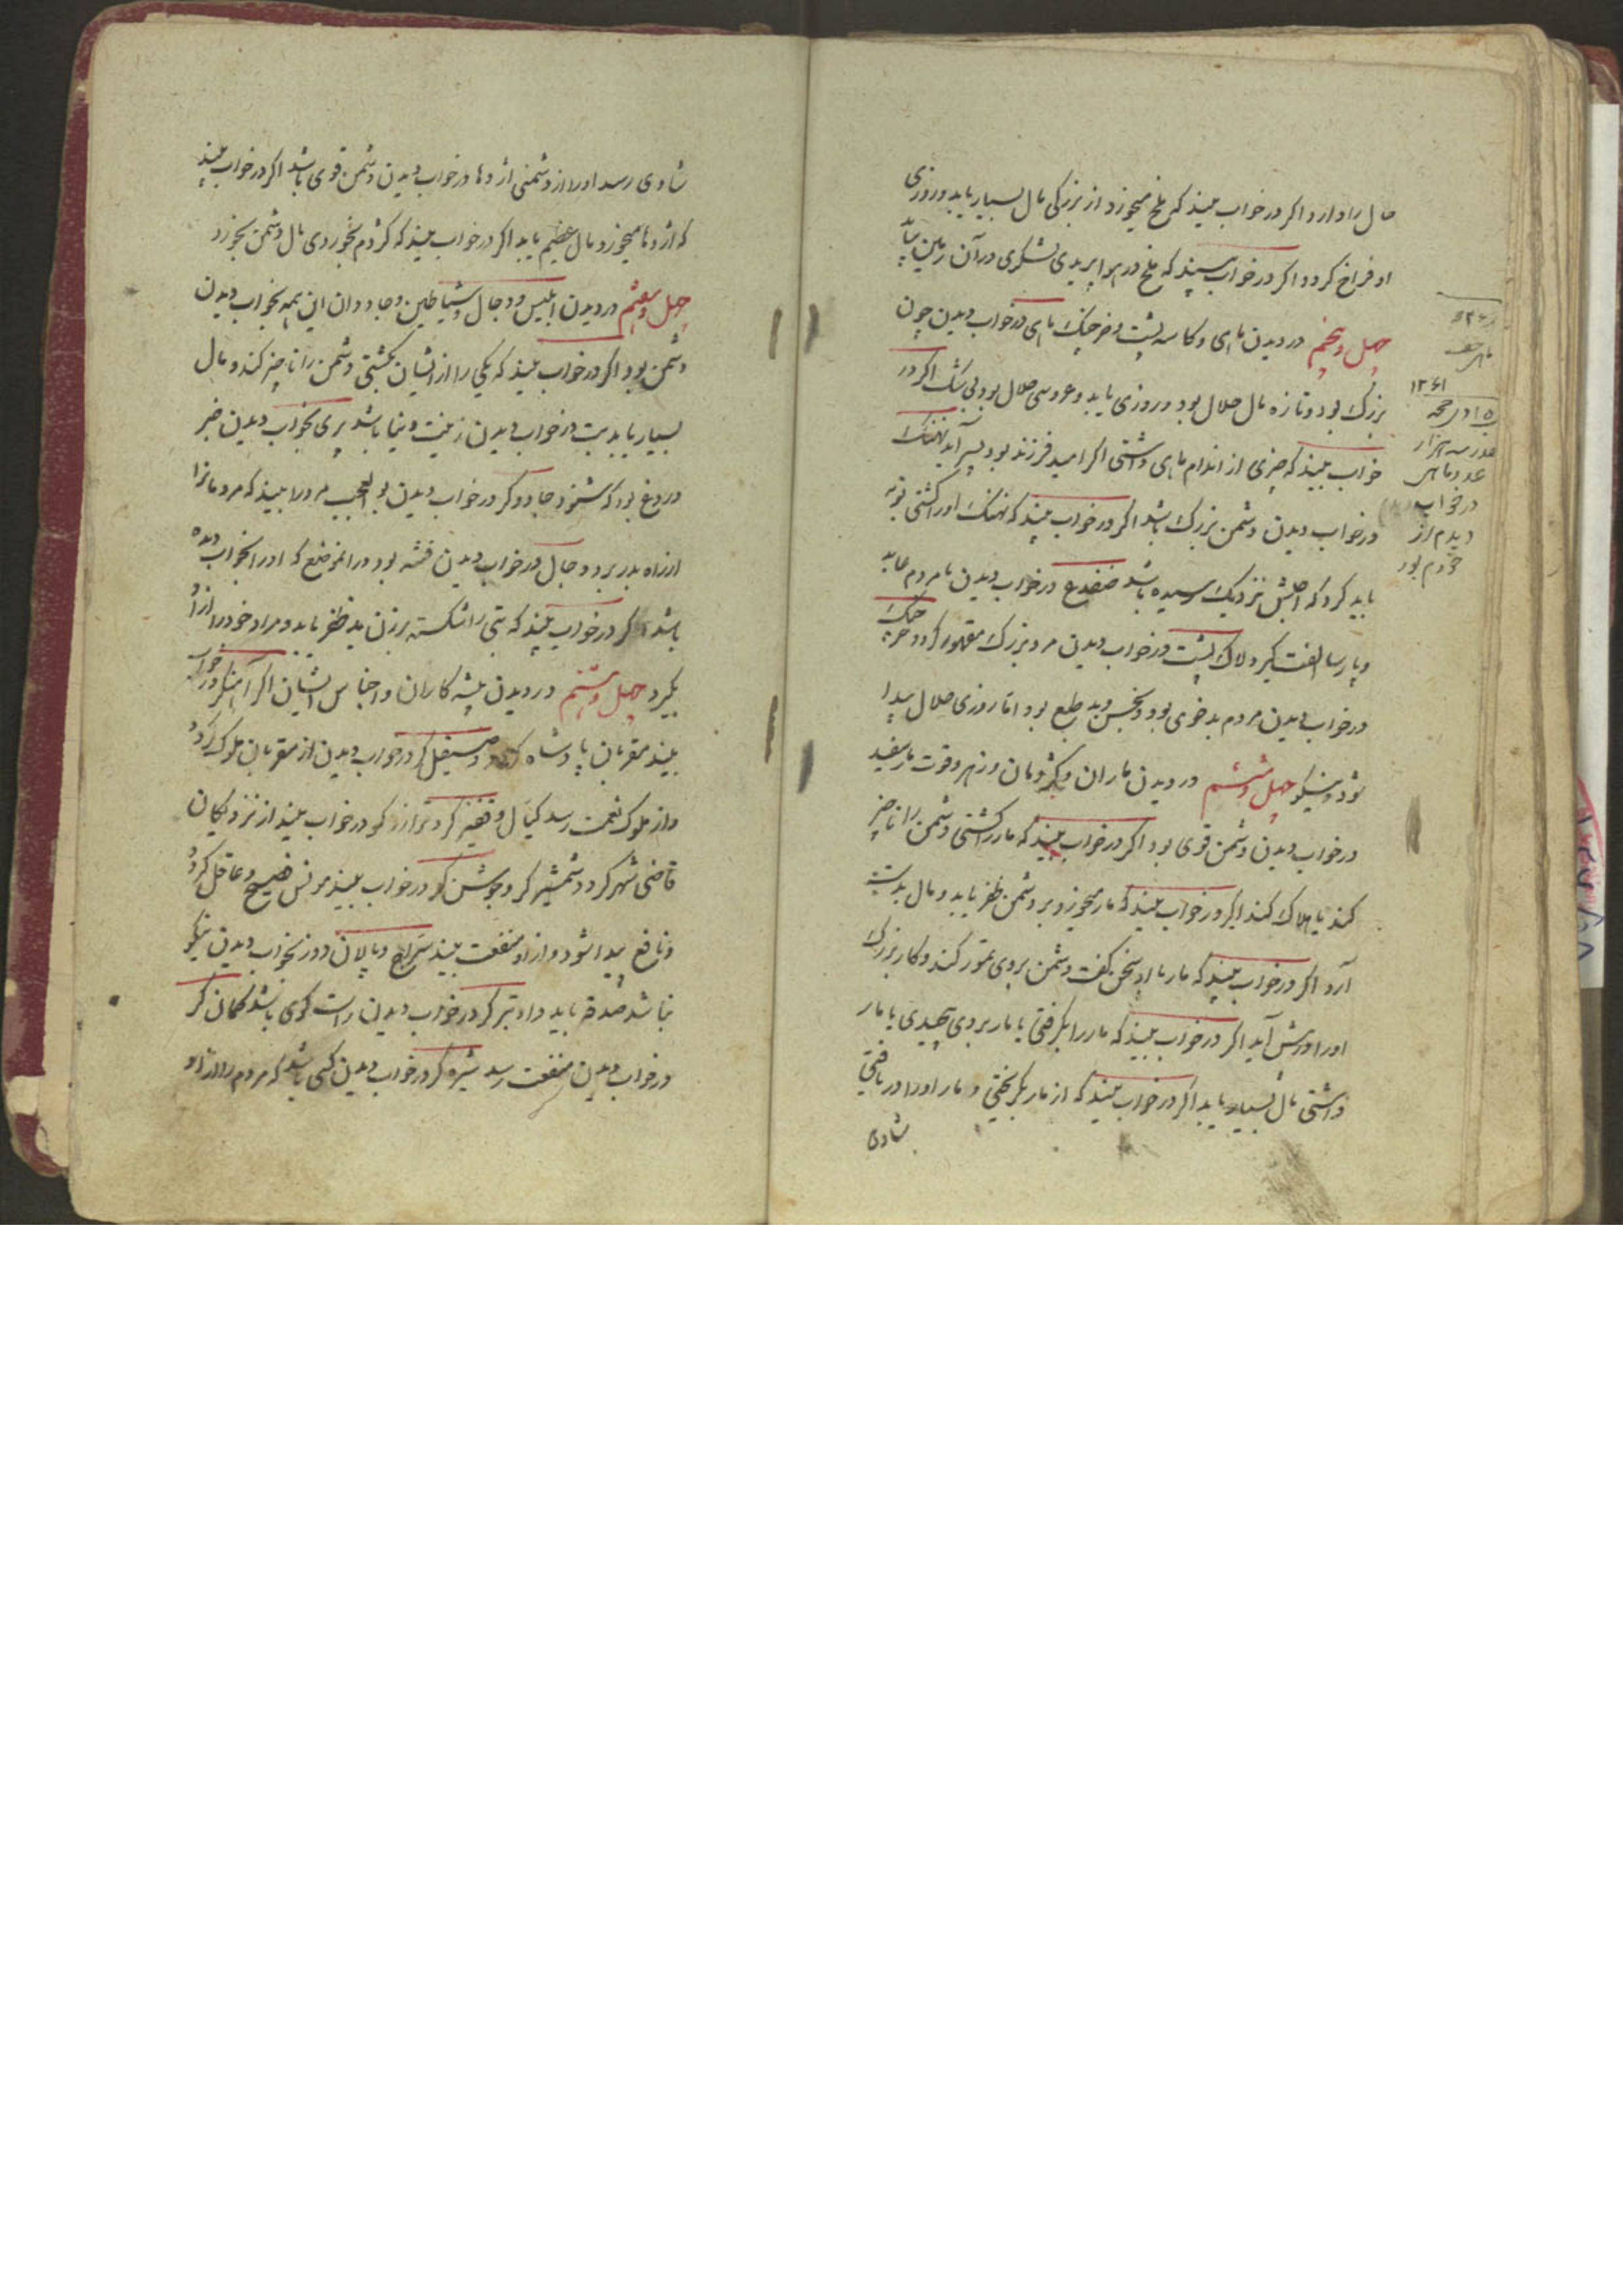 مال را دارد اکر در خواب بیند که ملخ میخورد از بزرکی مال بسیار یابد و روزی
او فراخ کردد اکر در خواب بیند که ملخ در هوا پریدی لشکری در آن زمین بیاید
چهل و پنجم در دیدن ماهی و کاسه پشت و خرچنک ماهی در خواب دیدن چون
بزرک بود و تازه مال حلال بود و روزی یابد و عروسی حلال بود بی شک اکر در
خواب بیند که چیزی از اندام ماهی داشتی اکر امید فرزند بود پسر آید نهنک
در خواب دیدن دشمن بزرک باشد اکر در خواب بیند که نهنک او را کشتی توبه
باید کرد که اجلش نزدیک رسیده باشد ضفدع در خواب دیدن با مردم عابد
و پارسا الفت کیرد لاک پشت در خواب دیدن مرد بزرک مقهور کردد خرچنک
در خواب دیدن مردم بدخوی بود و نحس و بد طبع بود اما روزی حلال پیدا
شود و نیکو چهل و ششم در دیدن ماران و کژدمان و زهر و قوت مار سفید
در خواب دیدن دشمن قوی بود اکر در خواب بیند که مار را کشتی دشمن را ناچیز
کند یا هلاک کند اکر در خواب بیند که مار میخورد بر دشمن ظفر یابد و مال بدست
آرد اکر در خواب بیند که مار با او سخن کفت دشمن بروی تهور کند و کار بزرک
او را در پیش آید اکر در خواب بیند که مار را بکرفتی یا مار بروی پیچیدی یا مار
داشتی مال بسیار یابد اکر در خواب بیند که از مار بکریختی و مار او را دریافتی
شادی
۱۲۶۱
در خواب
دیدم از
خودم بود
شادی رسد او را از دشمنی اژدها در خواب دیدن دشمن قوی باشد اکر در خواب بیند
که اژدها میخورد مال عظیم یابد اکر در خواب بیند که کژدم بخوردی مال دشمن بخورد
چهل و هفتم در دیدن ابلیس و دجال و شیاطین و جادوان این همه بخواب دیدن
دشمن بود اکر در خواب بیند که یکی را از ایشان بکشتی دشمن را ناچیز کند و مال
بسیار یابد بت در خواب دیدن زینت دنیا باشد پری بخواب دیدن خبر
دروغ بود که شنود جادوکر در خواب دیدن بوالعجب مردرا بیند که مردمانرا
از راه بدر برد دجال در خواب دیدن فتنه بود در انموضع که او را بخواب دیده
باشد اکر در خواب بیند که بتی را شکسته بر زن بد ظفر یابد و مراد خود را از او
بکیرد چهل و هشتم در دیدن پیشه کاران و اجناس ایشان اکر آهنکر در خواب
بیند مقربان پادشاه کردد و صیقل کر در خواب دیدن از مقربان ملوک کردد
و از ملوک نعمت رسد کیال و قفیز کر و ترازوکر در خواب بیند از نزدیکان
قاضی شهر کردد شمشیر کر و جوشن کر در خواب بیند مونس فصیح و عاقل کردد
و نافع پیدا شود و از او منفعت بیند سراج و پالان دوز بخواب دیدن نیکو
نباشد صدقه باید داد تیرکر در خواب دیدن راست کوی باشد کمان کر
در خواب دیدن منفعت رسد شیره کر در خواب دیدن کسی باشد که مردم را از او